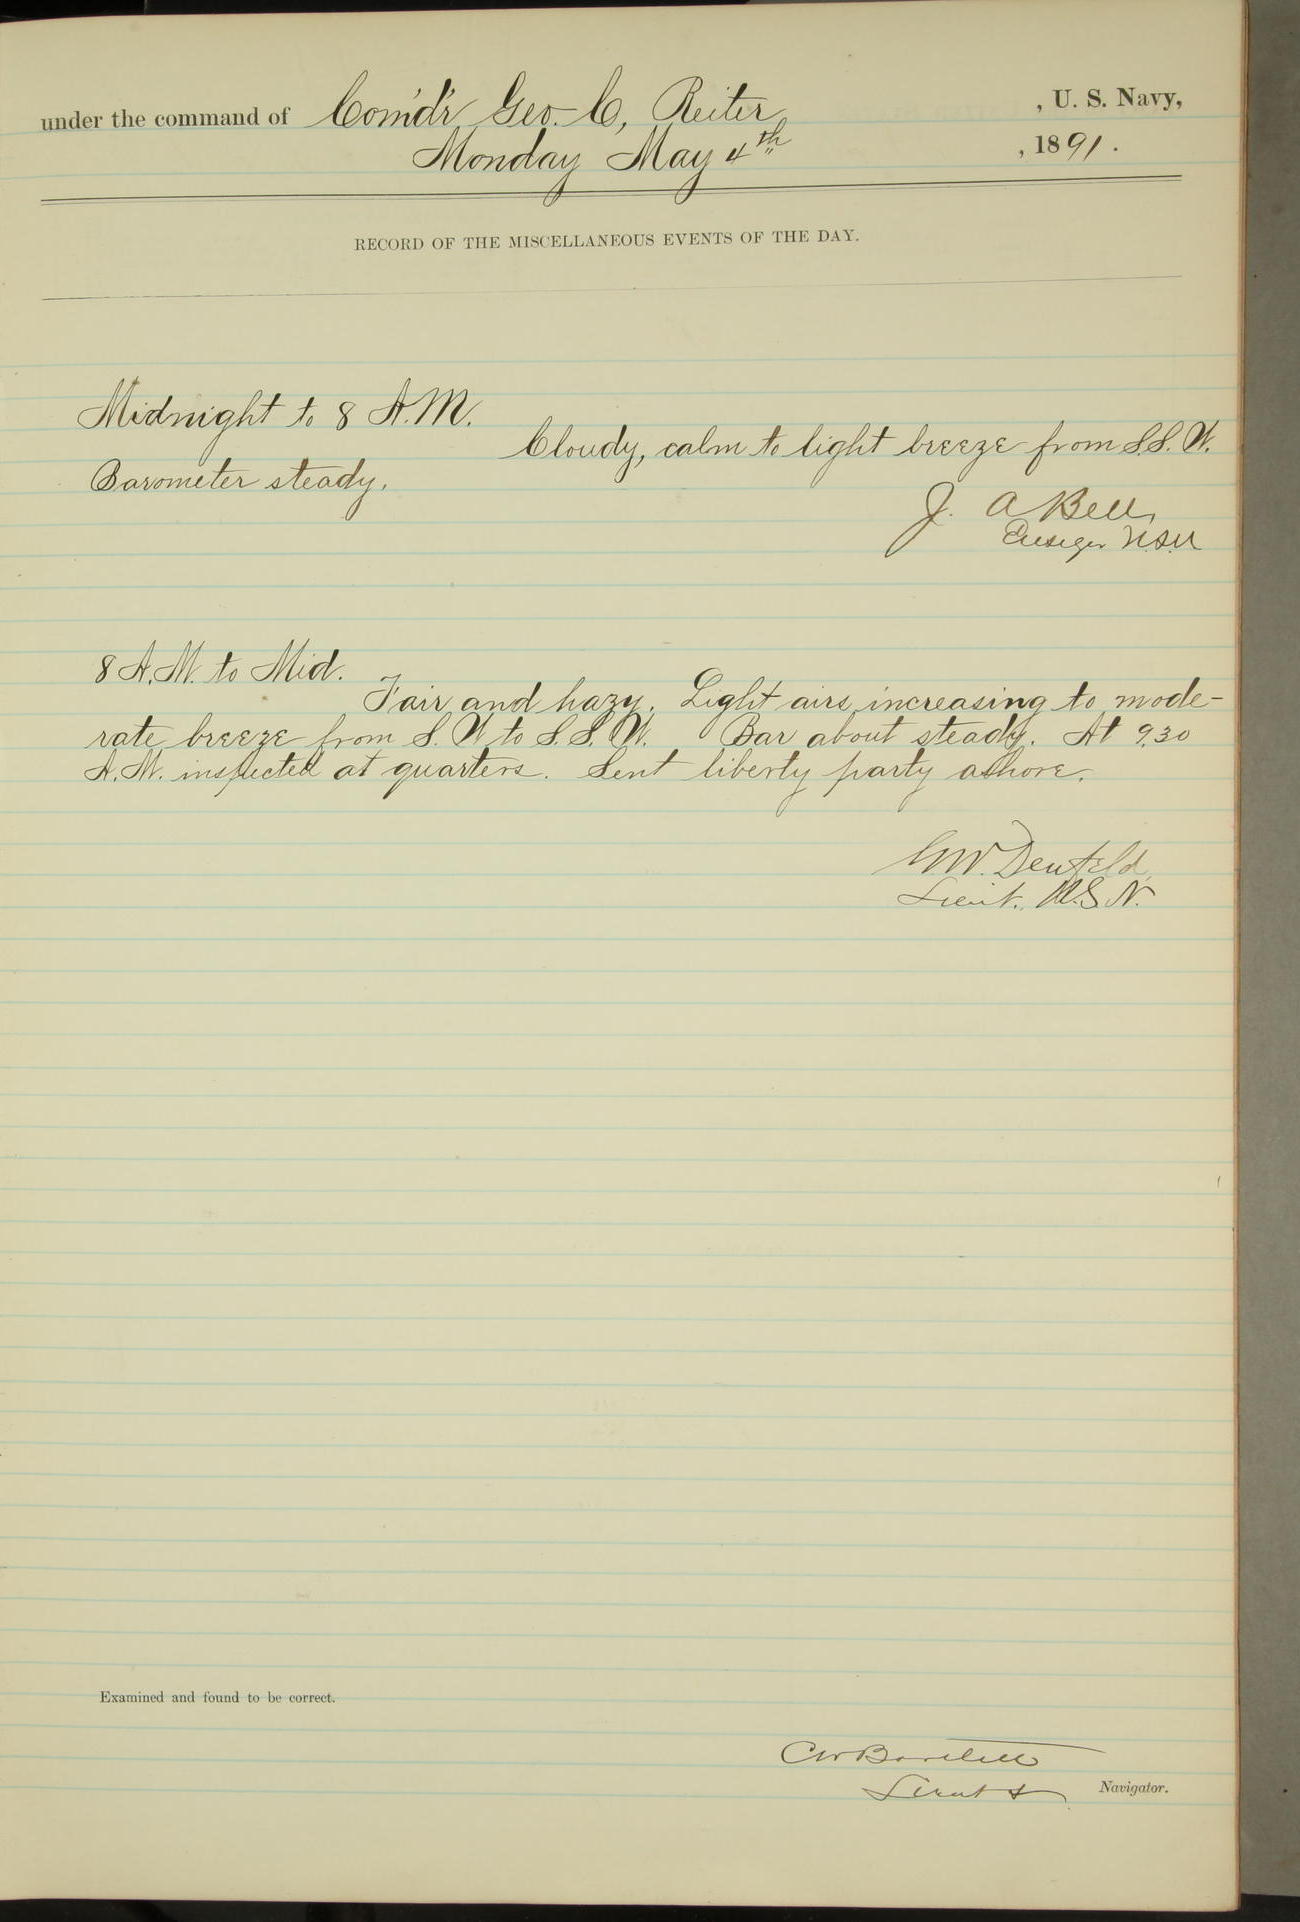 under the command of Com'd'r Geo. C, Reiter, , U. S. Navy,
Monday May 4th , 1891.
RECORD OF THE MISCELLANEOUS EVENTS OF THE DAY.
Midnight to 8 A.M.
Cloudy, calm to light breeze from S.S.W.
Barometer steady.
J. A Bell,
Ensign USN
8 A.M. to Mid.
Fair and hazy. Light airs increasing to mode-
rate breeze from S.W to S.S.W. Bar about steady. At 9.30
A.M. inspected at quarters. Sent liberty party ashore.
G W. Denfeld,
Lieut. U.S N.
Examined and found to be correct.
CW Bartlett
Lieut Navigator.